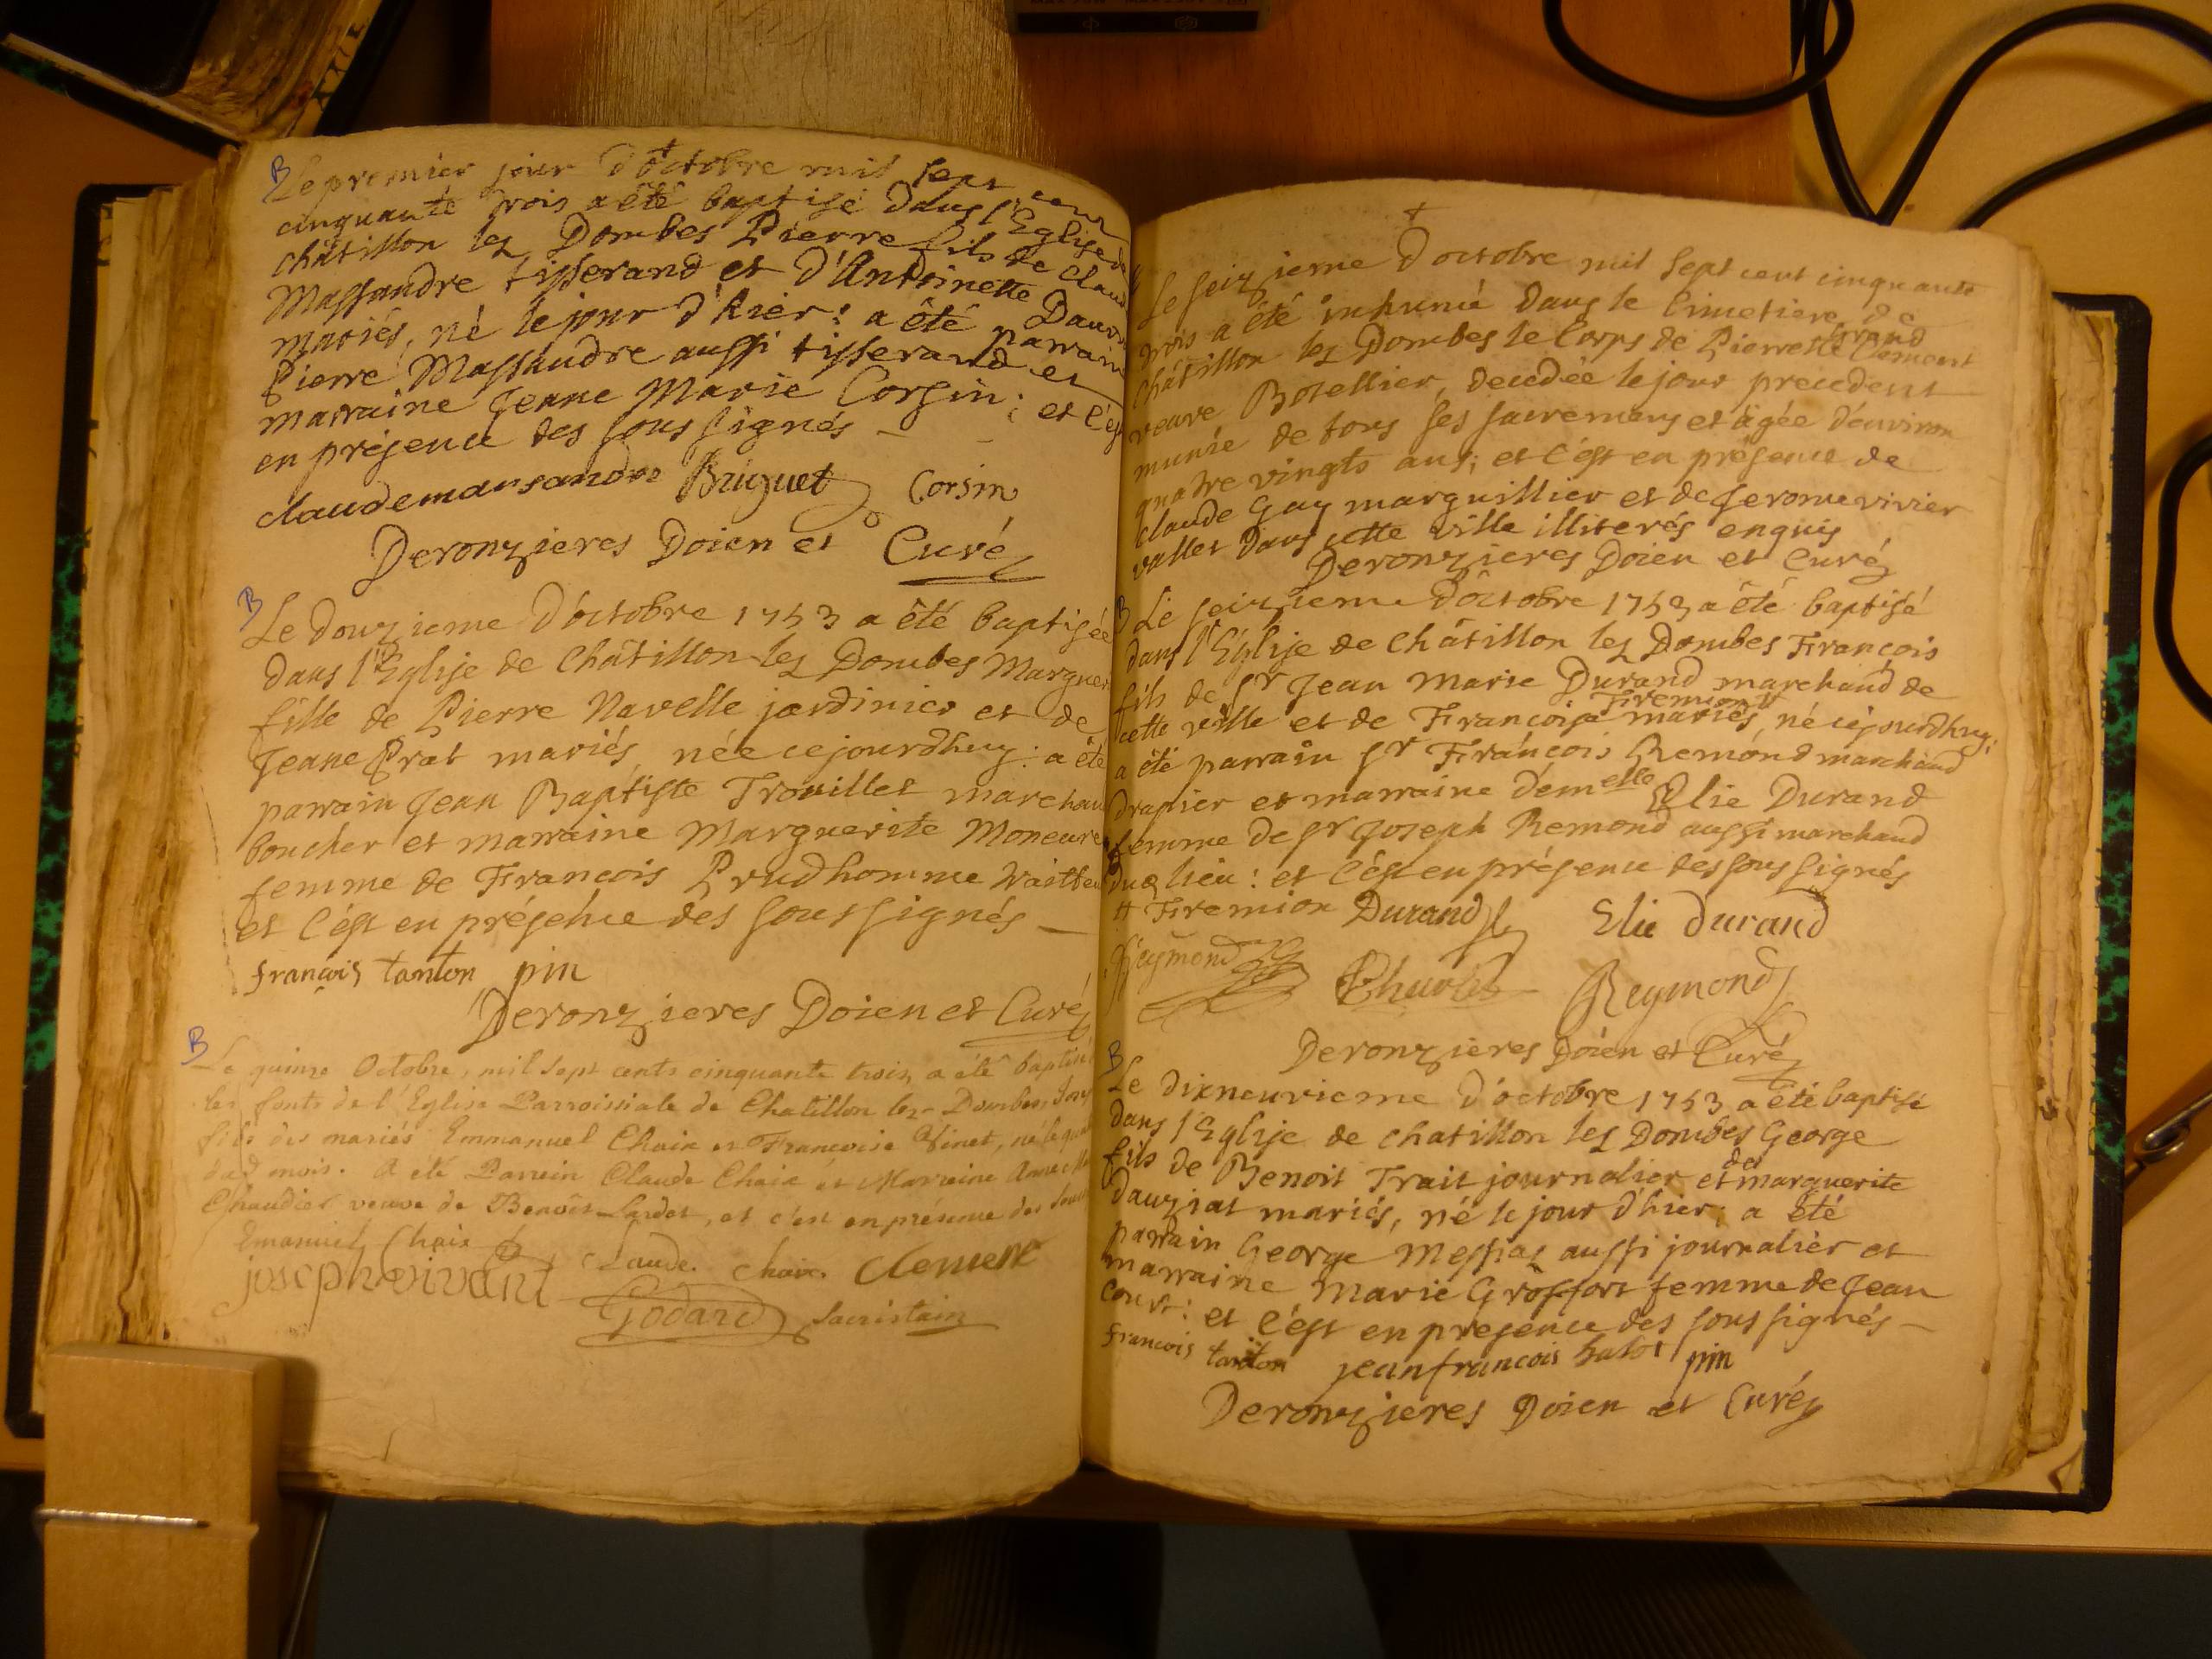 B Le premier jour d'octobre mil sept cent
cinquante trois a été baptisé dans l'Eglise de
châtillon lez Dombes Pierre fils de Claude
Massandre tisserand et d'Antoinette
mariés, né le jour d'hier: a été parrain
Pierre Massandre aussi tisserand et
marraine Jeane Marie Corsin; et c'est
en présence des sous signés
claude mansandre Briguet Corsin
Deronzieres Doien et Curé
B Le douzieme d'octobre 1753 a été baptisée
dans l'Eglise de Châtillon lez Dombes Marguer
fille de Pierre Navelle jardinier et de
Jeane Prat mariés, née cejourdhuy: a été
parrain Jean Baptiste Trouillet marchand
boucher et marraine Marguerite
femme de François Prudhomme
et c'est en présence des sous signés
françois tonton pin
Deronzieres Doien et Curé
B Le quinze Octobre, mil sept cents cinquante trois, a été baptisé
les fonts de l'Eglise Parroissiale de Chatillon lez Dombes,
fils des mariés Emmanuel Chaix et Francoise Vinet, né le
dud mois. A été Parrein Claude Chaix et Marreine Anne
Chaudier veuve de Benoit Lardet, et c'est en présence des
Emanuel Chaix Claude chaix Clement
joseph vivant Godard Sacristain
Le seizieme d'octobre mil sept cent cinquante
trois a été inhumé dans le Cimetiere de
grand
Châtillon lez Dombes le Corps de Pierrette Clement
veuve Botellier, decedée le jour precedent
munie de tous ses sacremens et agée d'environ
quatre vingts ans; et c'est en présence de
claude Gay marguillier et de Jerome vivier
vallet dans cette ville illiterés enquis
Deronzieres Doien et Curé
B Le seizieme d'octobre 1753 a été baptisé
dans l'Eglise de Châtillon lez Dombes François
fils de Sr Jean Marie Durand marchand de
Firemion
cette ville et de Françoise mariés, né cejourdhuy:
a été parrain Sr François Remond marchand
drapier et marraine demelle Elie Durand
femme de Sr Joseph Remond aussi marchand
dud lieu: et c'est en présence des sous signés
# Firemion Durand Elie durand
Reymond Reymond
Deronzieres Doien et Curé
B Le dixneuvieme d'octobre 1753 a été baptisé
dans l'Eglise de Chatillon lez Dombes George
fils de Benoit Trait journalier et de marguerite
dauziat mariés, né le jour d'hier; a été
parrain George Messiaz aussi journalier et
marraine Marie Grosfort femme de Jean
Court: et c'est en presence des sous signés
francois tonton jean francois pin
Deronzieres Doien et Curé